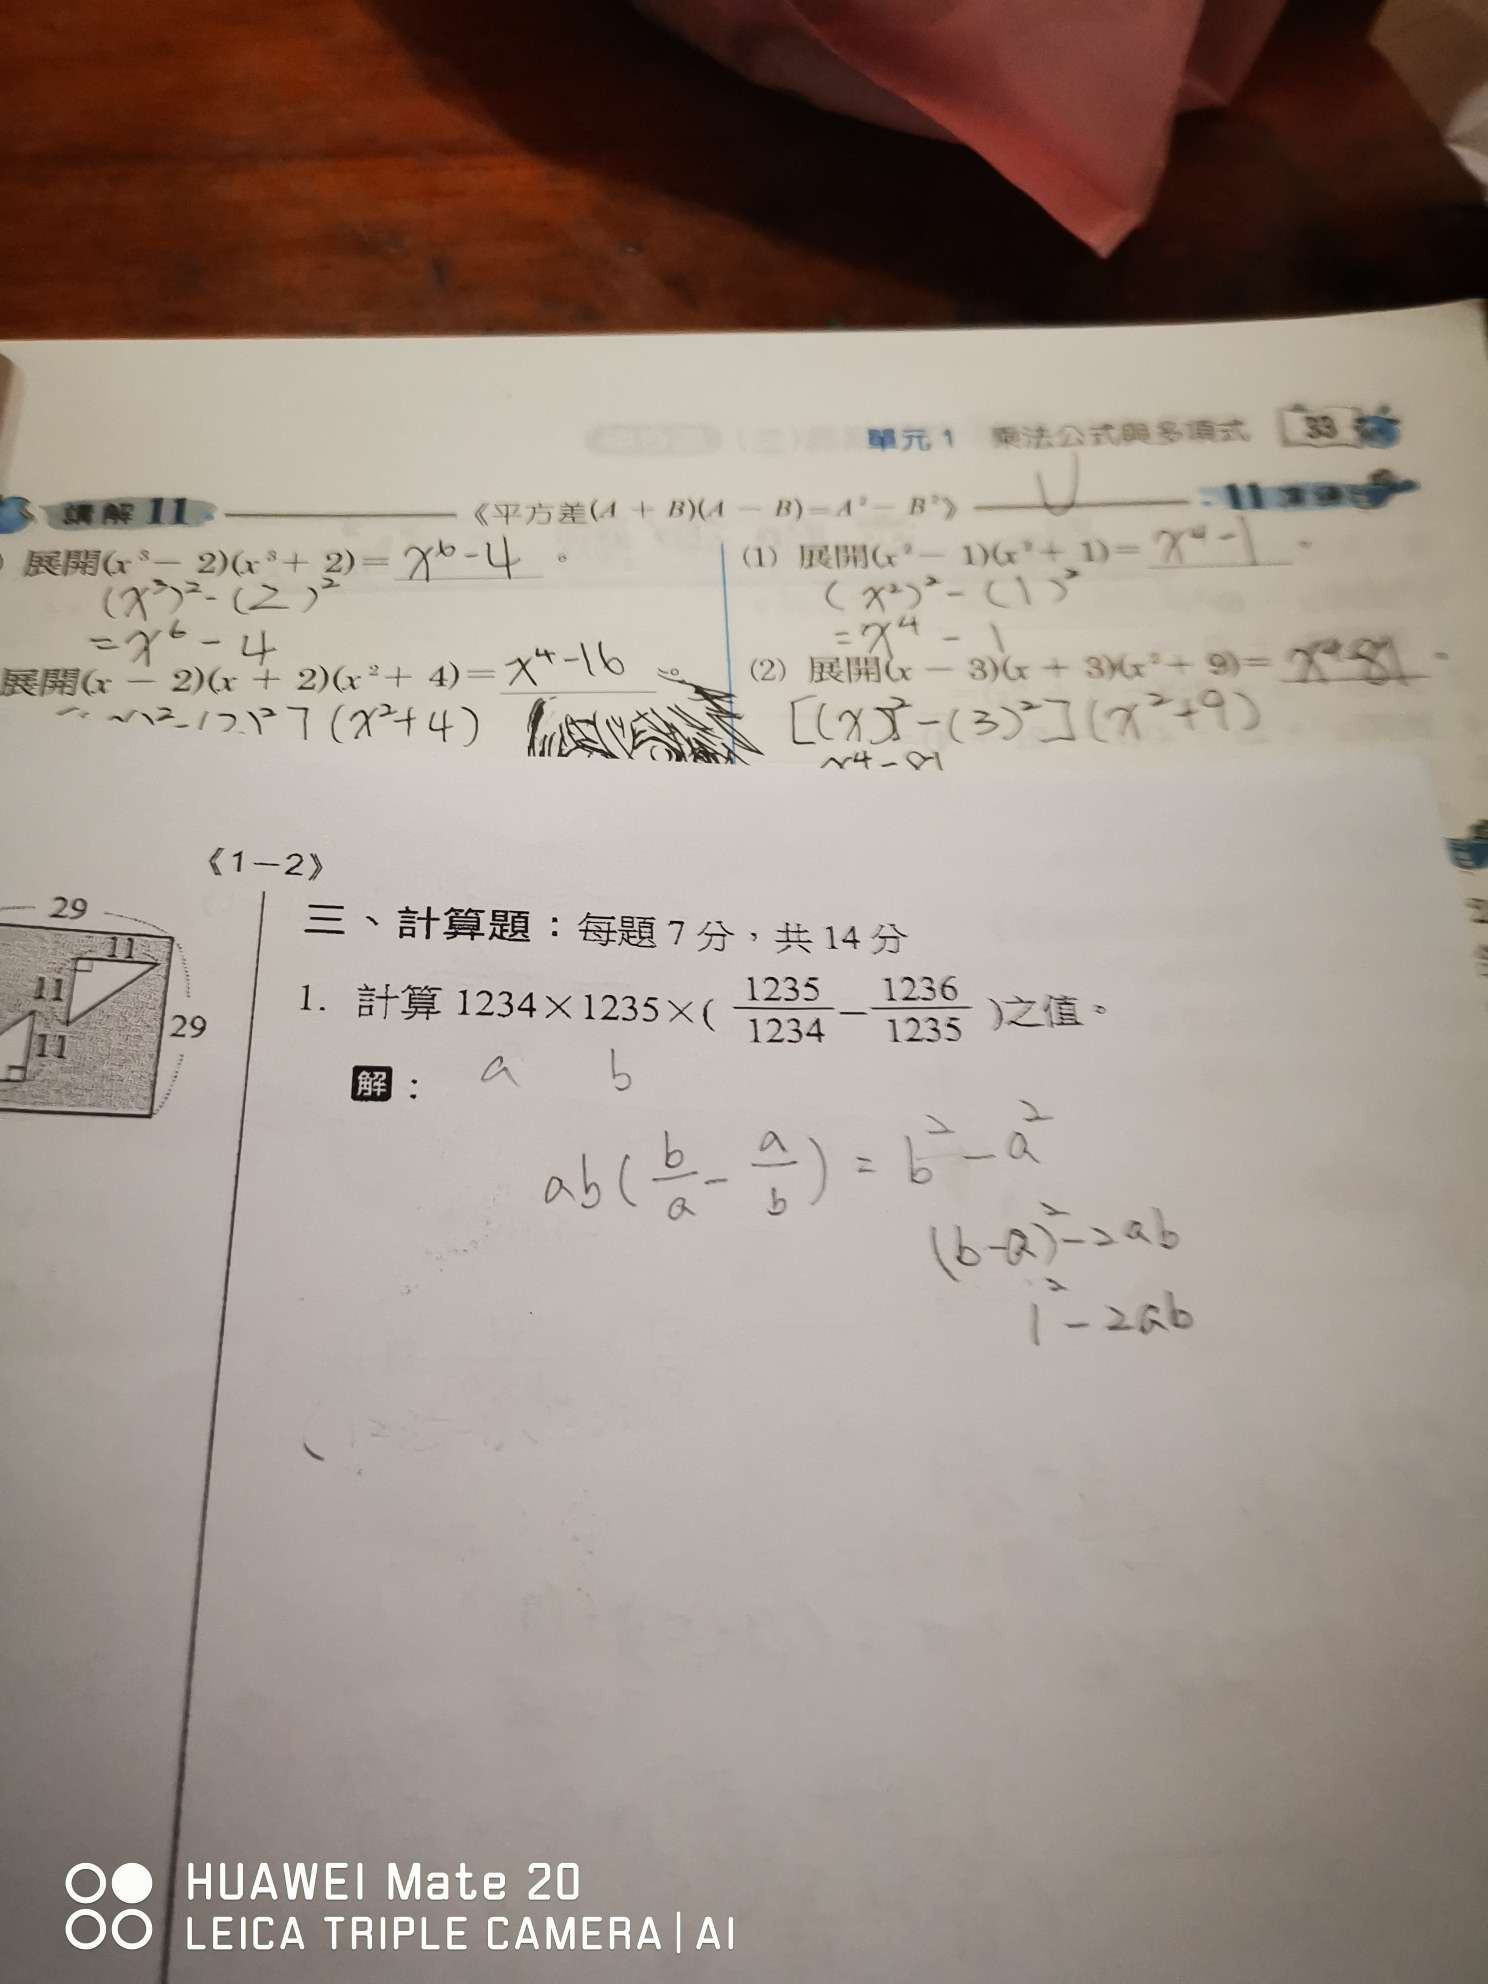 單元1 乘法公式與多項式 33
講解11 《平方差(A + B)(A − B)=A²− B²》 11
展開(x³− 2)(x³+ 2)= x⁶-4 。
(x³)²-(2)²
=x⁶-4
展開(x − 2)(x + 2)(x²+ 4)= x⁴-16 。
(x²+4)
(1) 展開(x²− 1)(x²+ 1)= x⁴-1 。
(x²)²-(1)²
=x⁴-1
(2) 展開(x − 3)(x + 3)(x²+ 9)= x⁴-81 。
[(x)²-(3)²](x²+9)
x⁴-81
《1−2》
29
11
11
29
11
三、計算題：每題7分，共14分
1. 計算 1234×1235×( 1235/1234 − 1236/1235 )之值。
解： a b
ab(b/a - a/b) = b²-a²
(b-a)²-2ab
1²-2ab
HUAWEI Mate 20
LEICA TRIPLE CAMERA | AI